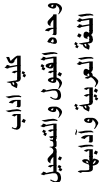 كلية اداب
وحده القبول والتسجيل
اللغة العربية وآدابها